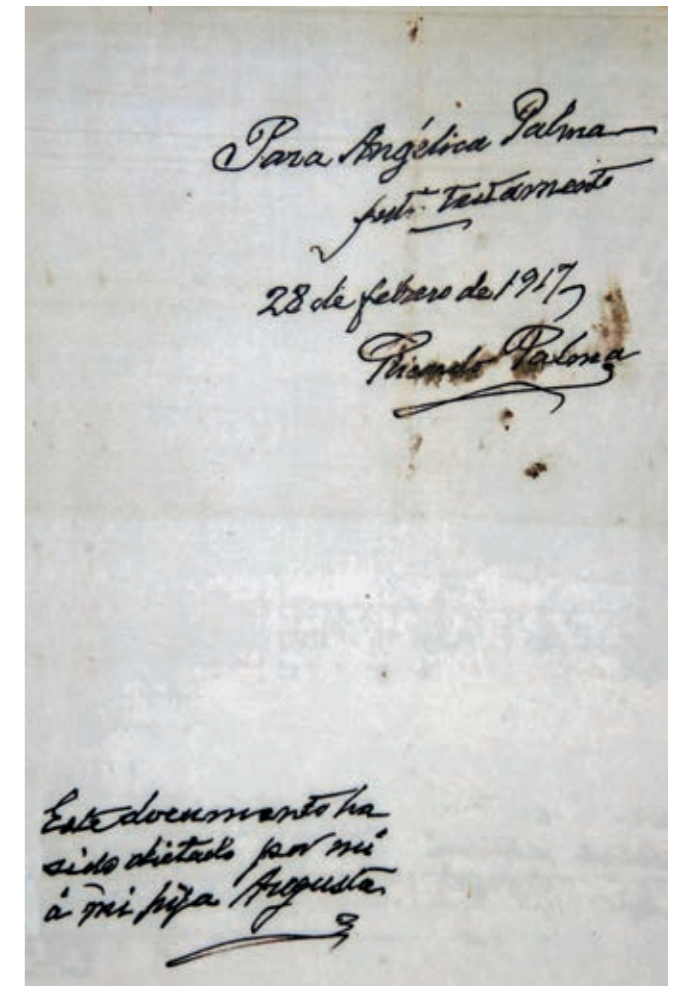 Para Angélica Palma
testamento
28 de febrero de 1917
Ricardo Palma
Este documento ha
sido dictado por mí
á mi hija Augusta